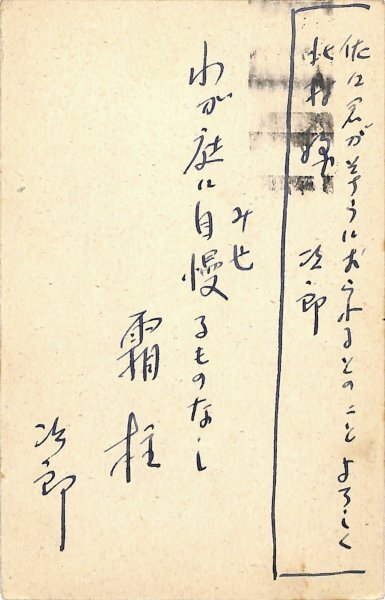 君がそちらにおられるとのこと よろしく
北村様 次郎
みせ
わが庭に自慢るものなし
霜柱
次郎